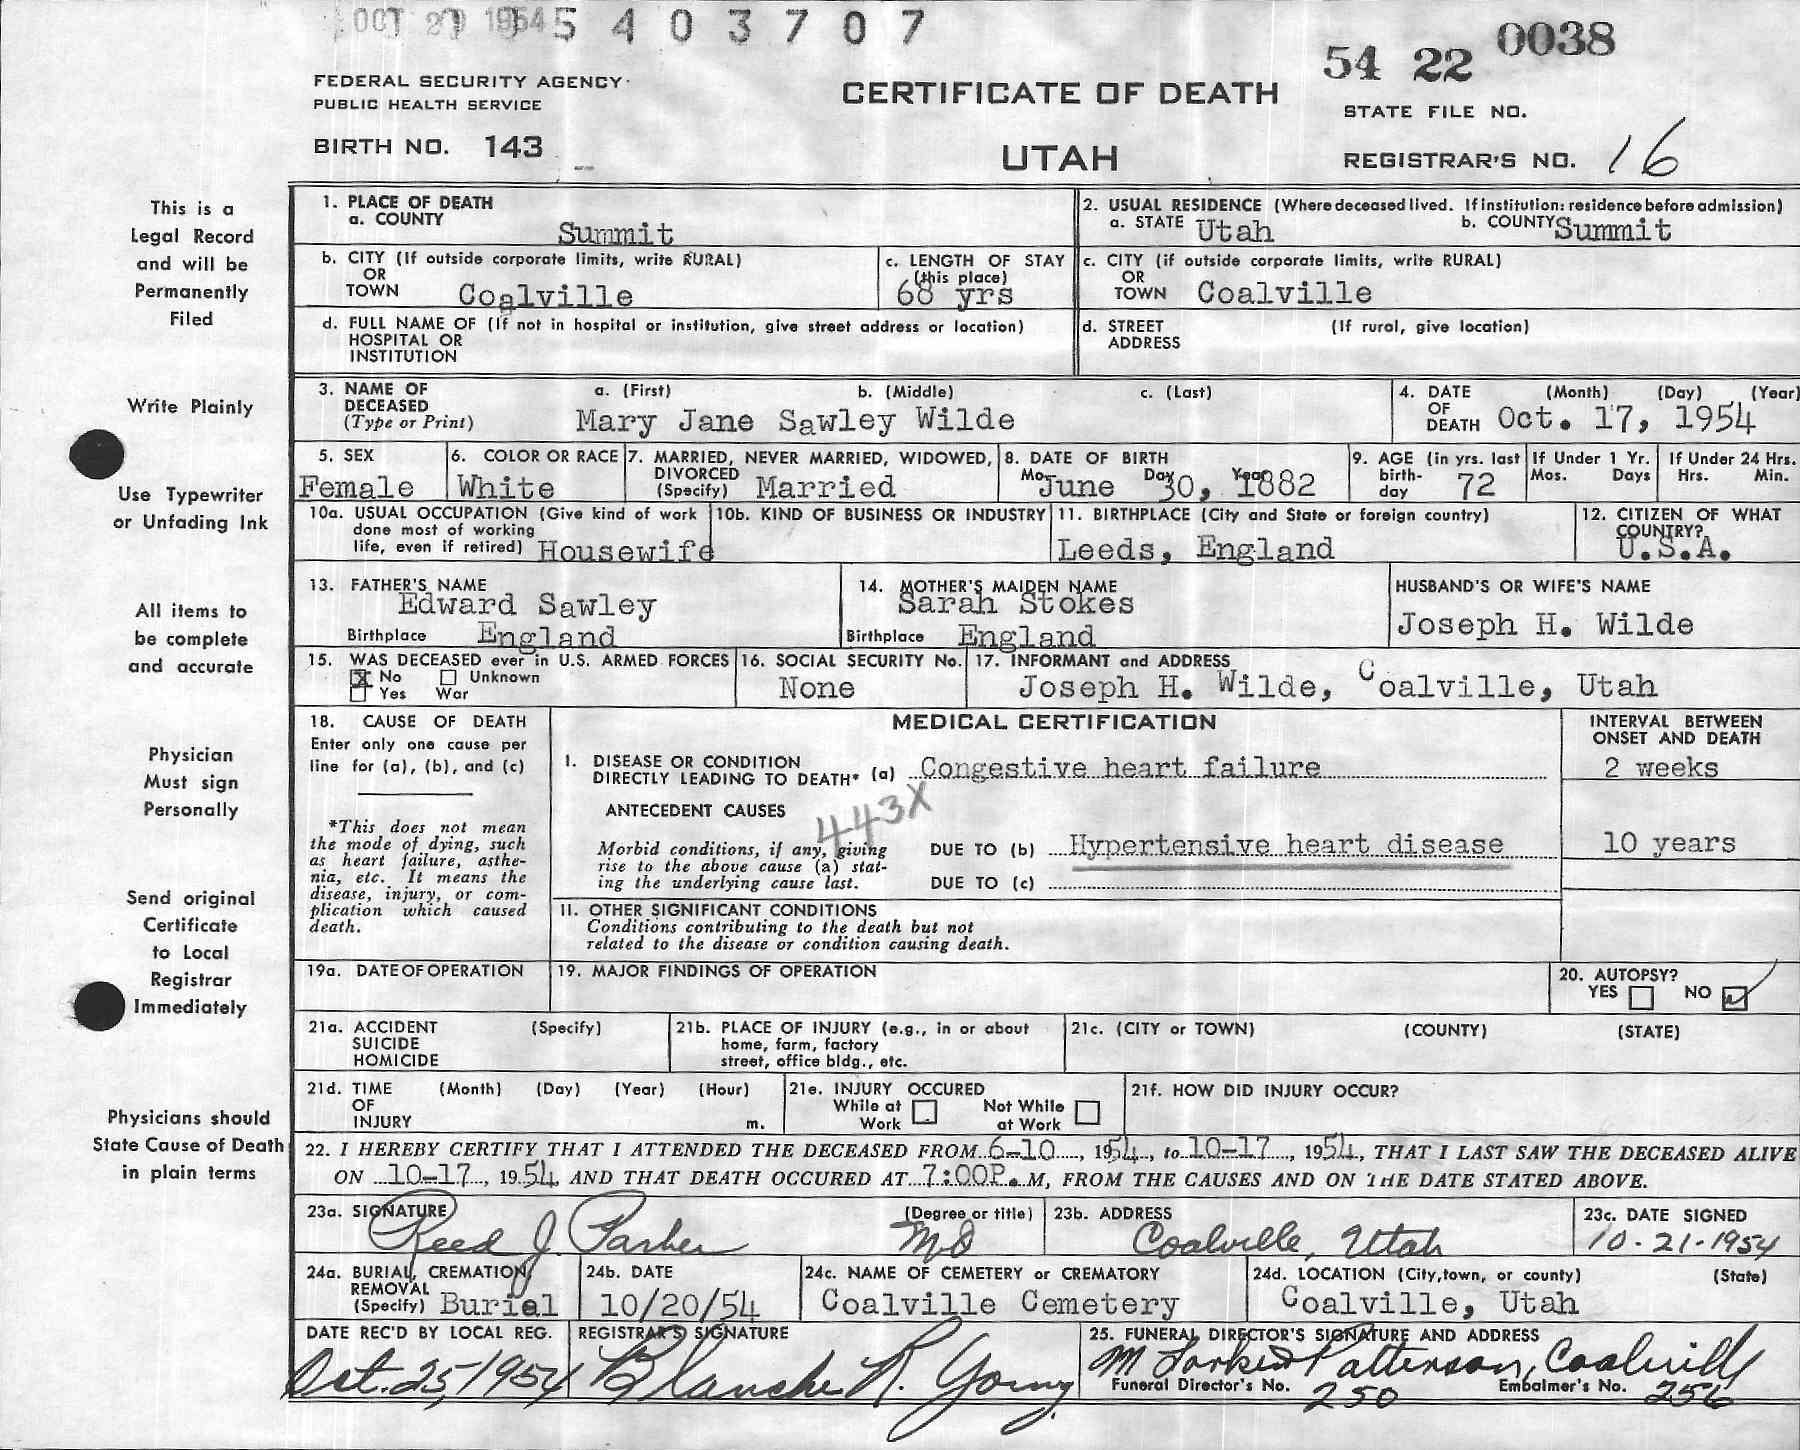 OCT 29 1954 5 4 0 3 7 0 7
54 22 0038
FEDERAL SECURITY AGENCY
PUBLIC HEALTH SERVICE
CERTIFICATE OF DEATH
STATE FILE NO.
BIRTH NO. 143
UTAH
REGISTRAR'S NO. 16
This is a
Legal Record
and will be
Permanently
Filed
Write Plainly
Use Typewriter
or Unfading Ink
All items to
be complete
and accurate
Physician
Must sign
Personally
Send original
Certificate
to Local
Registrar
Immediately
Physicians should
State Cause of Death
in plain terms
1. PLACE OF DEATH
a. COUNTY
Summit
2. USUAL RESIDENCE (Where deceased lived. If institution: residence before admission)
a. STATE Utah b. COUNTY Summit
b. CITY (If outside corporate limits, write RURAL)
OR
TOWN Coalville
c. LENGTH OF STAY
(this place)
68 yrs
c. CITY (if outside corporate limits, write RURAL)
OR
TOWN Coalville
d. FULL NAME OF (If not in hospital or institution, give street address or location)
HOSPITAL OR
INSTITUTION
d. STREET (If rural, give location)
ADDRESS
3. NAME OF a. (First) b. (Middle) c. (Last)
DECEASED
(Type or Print) Mary Jane Sawley Wilde
4. DATE (Month) (Day) (Year)
OF
DEATH Oct. 17, 1954
5. SEX
Female
6. COLOR OR RACE
White
7. MARRIED, NEVER MARRIED, WIDOWED,
DIVORCED
(Specify) Married
8. DATE OF BIRTH
Mo. Day Year
June 30, 1882
9. AGE (in yrs. last
birth-
day 72
If Under 1 Yr.
Mos. Days
If Under 24 Hrs.
Hrs. Min.
10a. USUAL OCCUPATION (Give kind of work
done most of working
life, even if retired) Housewife
10b. KIND OF BUSINESS OR INDUSTRY
11. BIRTHPLACE (City and State or foreign country)
Leeds, England
12. CITIZEN OF WHAT
COUNTRY?
U.S.A.
13. FATHER'S NAME
Edward Sawley
Birthplace England
14. MOTHER'S MAIDEN NAME
Sarah Stokes
Birthplace England
HUSBAND'S OR WIFE'S NAME
Joseph H. Wilde
15. WAS DECEASED ever in U.S. ARMED FORCES
X No Unknown
Yes War
16. SOCIAL SECURITY No.
None
17. INFORMANT and ADDRESS
Joseph H. Wilde, Coalville, Utah
18. CAUSE OF DEATH
Enter only one cause per
line for (a), (b), and (c)
*This does not mean
the mode of dying, such
as heart failure, asthe-
nia, etc. It means the
disease, injury, or com-
plication which caused
death.
MEDICAL CERTIFICATION
INTERVAL BETWEEN
ONSET AND DEATH
I. DISEASE OR CONDITION
DIRECTLY LEADING TO DEATH* (a) Congestive heart failure 2 weeks
ANTECEDENT CAUSES
443X
Morbid conditions, if any, giving
rise to the above cause (a) stat-
ing the underlying cause last.
DUE TO (b) Hypertensive heart disease 10 years
DUE TO (c)
II. OTHER SIGNIFICANT CONDITIONS
Conditions contributing to the death but not
related to the disease or condition causing death.
19a. DATE OF OPERATION
19. MAJOR FINDINGS OF OPERATION
20. AUTOPSY?
YES NO
21a. ACCIDENT (Specify)
SUICIDE
HOMICIDE
21b. PLACE OF INJURY (e.g., in or about
home, farm, factory
street, office bldg., etc.
21c. (CITY or TOWN) (COUNTY) (STATE)
21d. TIME (Month) (Day) (Year) (Hour)
OF
INJURY m.
21e. INJURY OCCURED
While at Not While
Work at Work
21f. HOW DID INJURY OCCUR?
22. I HEREBY CERTIFY THAT I ATTENDED THE DECEASED FROM 6-10, 1954, to 10-17, 1954, THAT I LAST SAW THE DECEASED ALIVE
ON 10-17, 1954, AND THAT DEATH OCCURED AT 7:00P.M, FROM THE CAUSES AND ON THE DATE STATED ABOVE.
23a. SIGNATURE (Degree or title)
Reed J. Parker MD
23b. ADDRESS
Coalville, Utah
23c. DATE SIGNED
10-21-1954
24a. BURIAL, CREMATION,
REMOVAL
(Specify) Burial
24b. DATE
10/20/54
24c. NAME OF CEMETERY or CREMATORY
Coalville Cemetery
24d. LOCATION (City, town, or county) (State)
Coalville, Utah
DATE REC'D BY LOCAL REG.
Oct. 25, 1954
REGISTRAR'S SIGNATURE
Blanche R. Young
25. FUNERAL DIRECTOR'S SIGNATURE AND ADDRESS
M Patterson, Coalville
Funeral Director's No. 250 Embalmer's No. 256